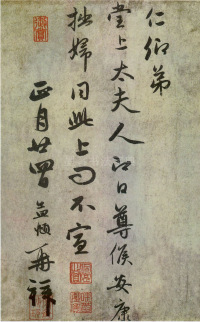 仁卿弟
堂上太夫人即日尊候安康
拙婦同此上問不宣
正月廿四日孟頫再拜